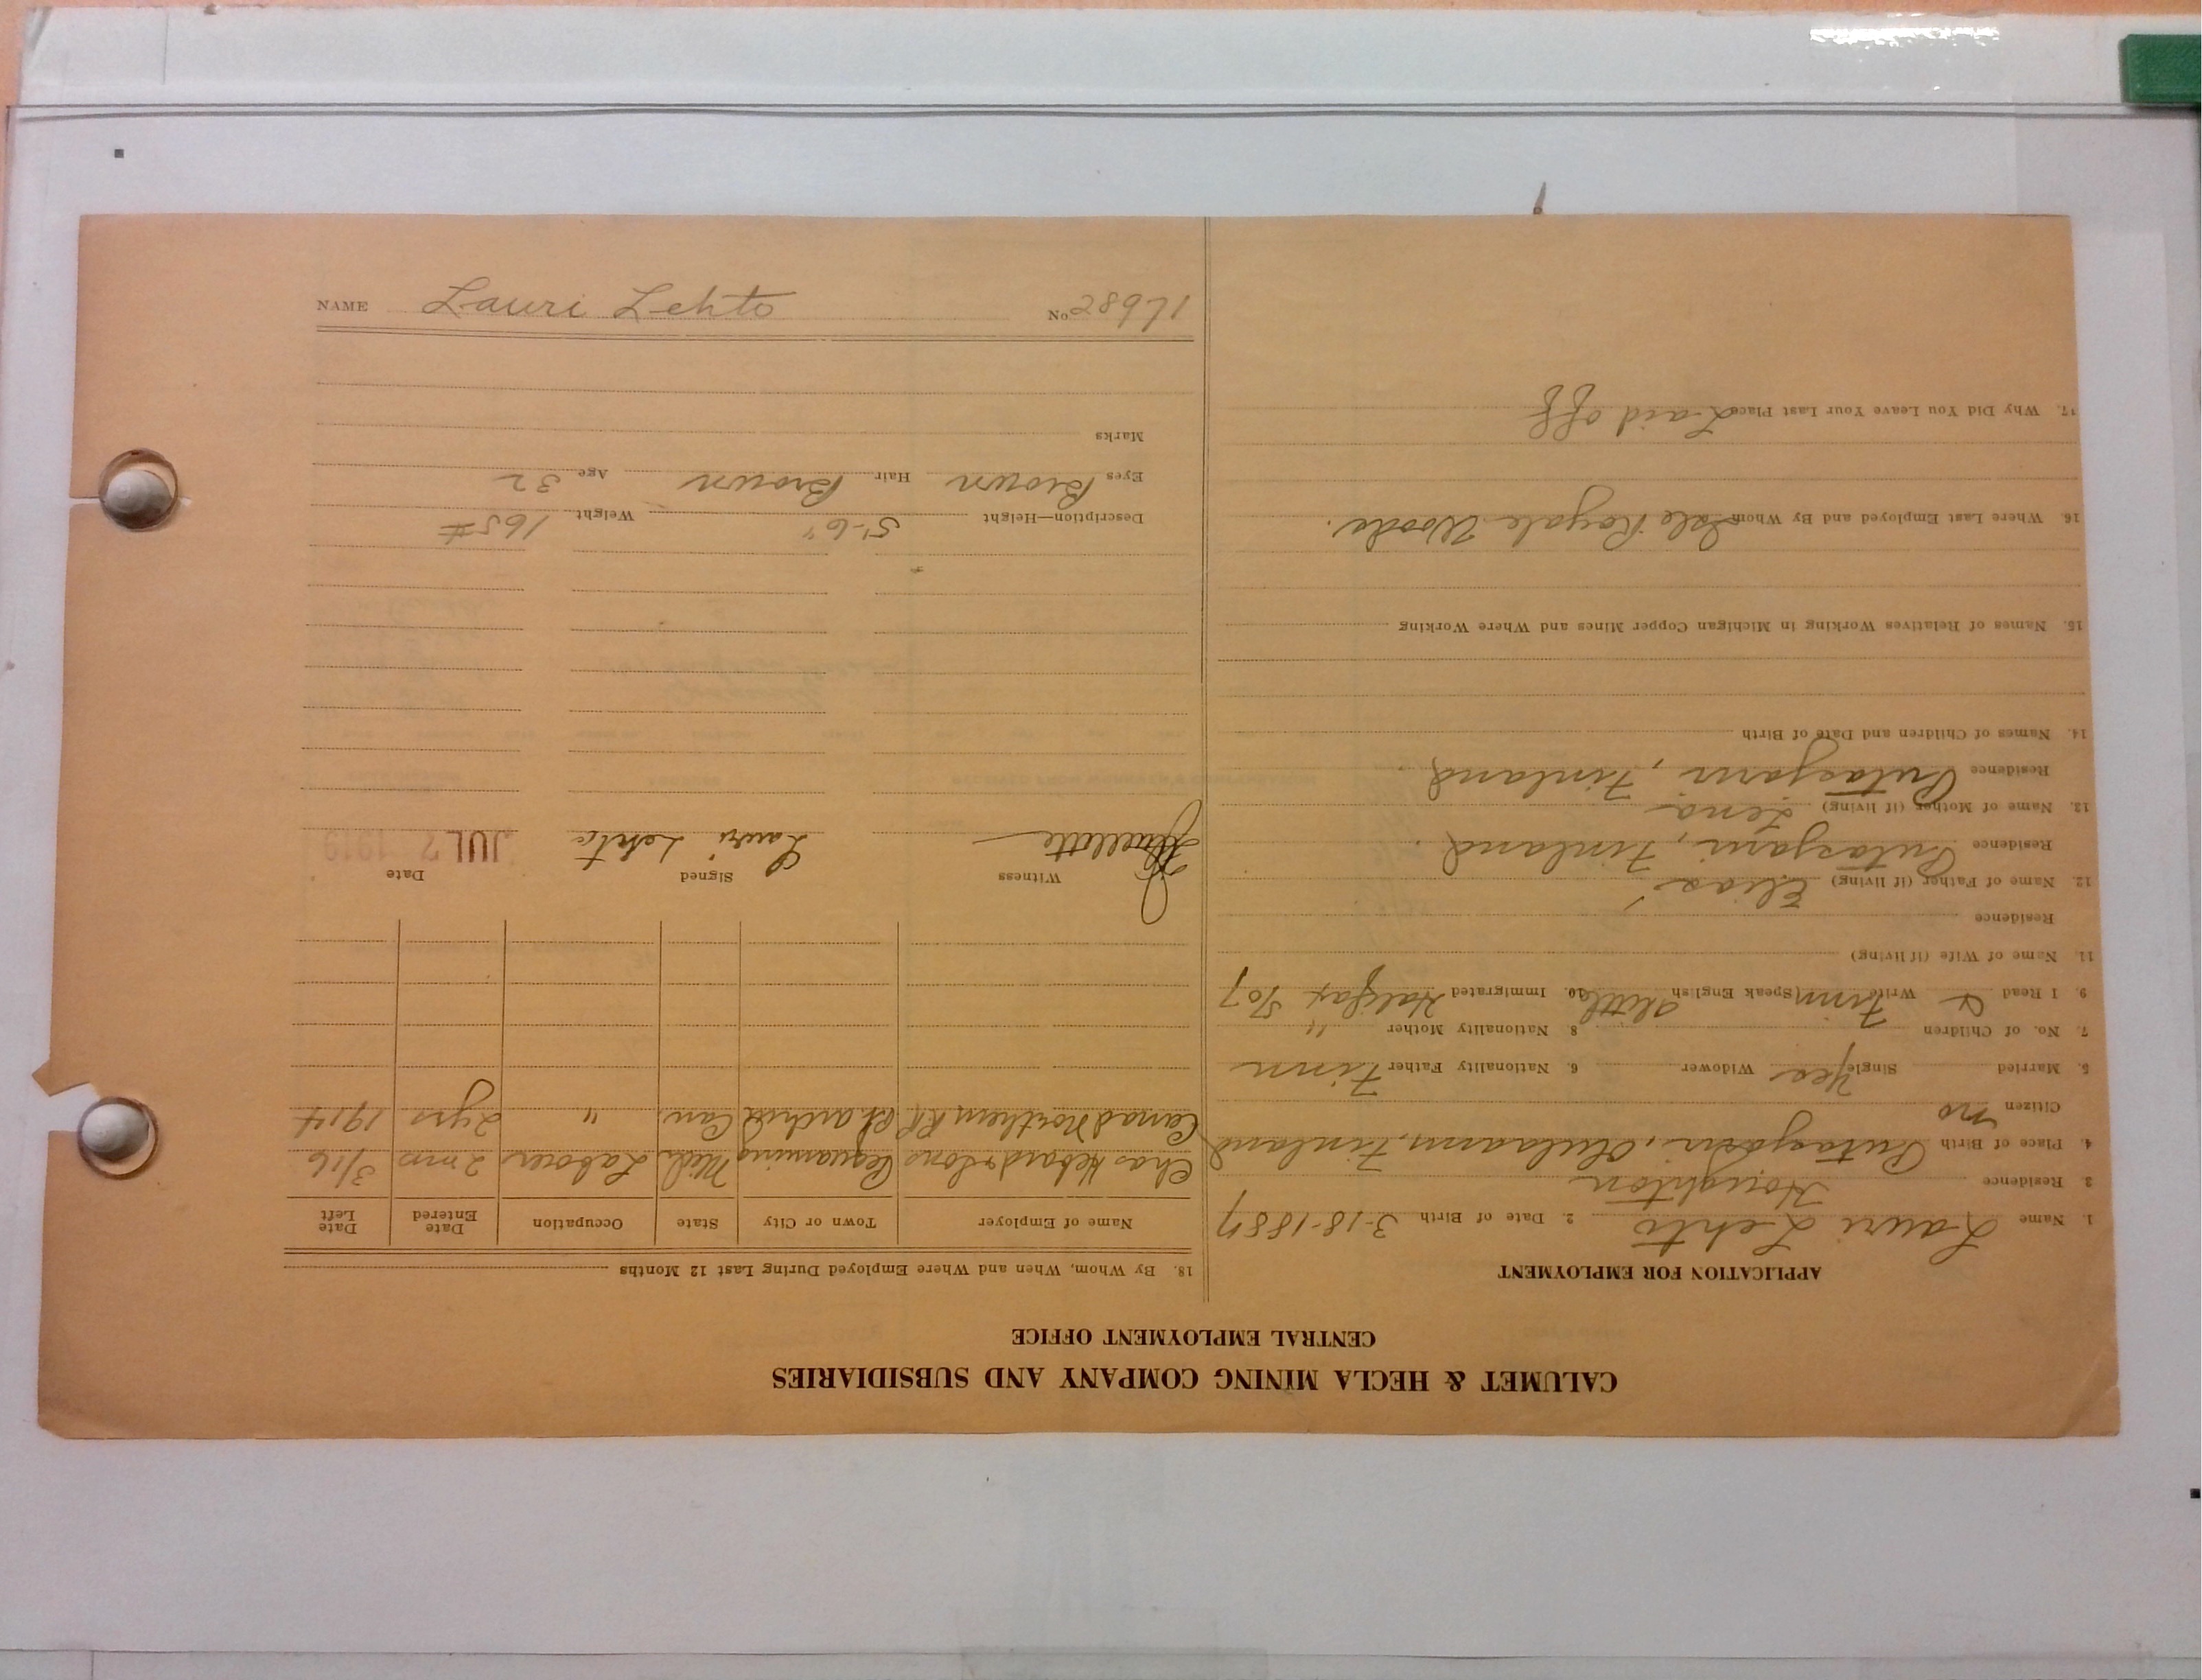 CALUMET & HECLA MINING COMPANY AND SUBSIDIARIES
CENTRAL EMPLOYMENT OFFICE
APPLICATION FOR EMPLOYMENT
1. Name Lauri Lehto 2. Date of Birth 3-18-1887
3. Residence Houghton
4. Place of Birth Putasjarvi, Finland
Citizen no
5. Married Single Yes Widower 6. Nationality Father Finn
7. No. of Children 8 Nationality Mother "
9. I Read & Write Finn (Speak English little 10. Immigrated Halifax 907
11. Name of Wife (if living)
Residence
12. Name of Father (if living) Elias
Residence Putasjarvi, Finland.
13. Name of Mother (if living) Lena
Residence Putasjarvi, Finland.
14. Names of Children and Date of Birth
15. Names of Relatives Working in Michigan Copper Mines and Where Working
16. Where Last Employed and By Whom Isle Royale Woods.
17. Why Did You Leave Your Last Place Laid off
18. By Whom, When and Where Employed During Last 12 Months
Name of Employer Town or City State Occupation Date Entered Date Left
Chas Hebard & Sons Pequaming Mich Laborer 2 mos 3/16
Canad Northern RR Can. " 2 yrs 1914
Witness Signed Date
Lauri Lehto JUL 2 1919
Description—Height 5'-6" Weight 165#
Eyes Brown Hair Brown Age 32
Marks
NAME Lauri Lehto No 28971